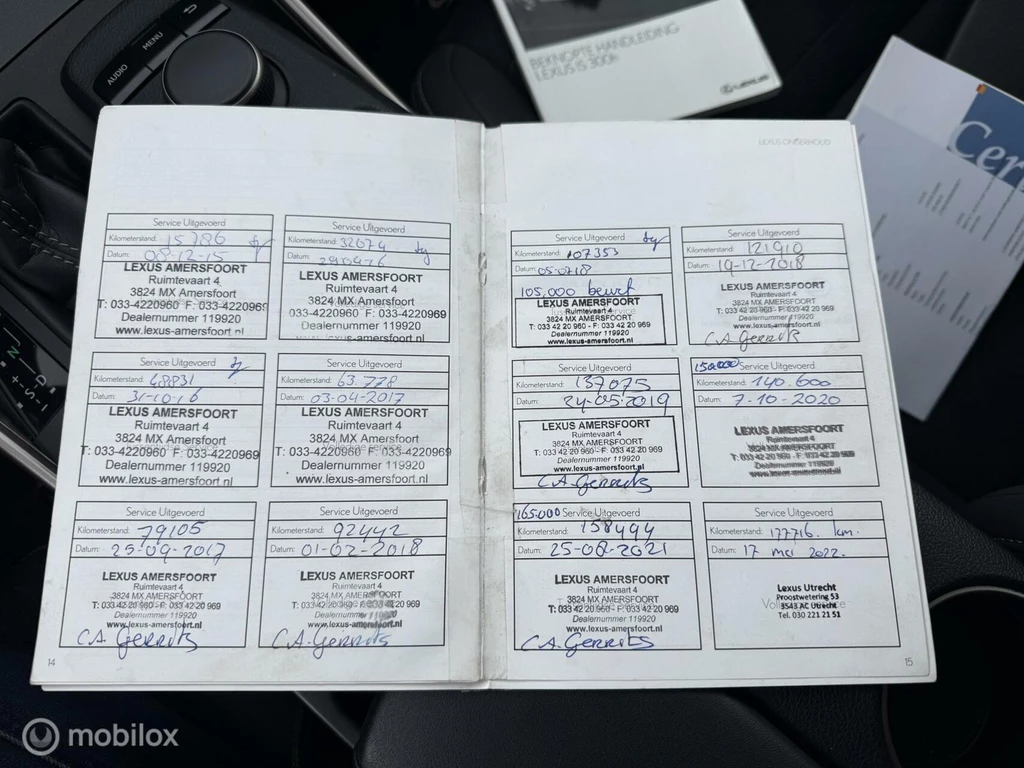 AUDIO
MENU
BEKNOPTE HANDLEIDING
LEXUS IS 300h
LEXUS
Cer
LEXUS ONDERHOUD
Service Uitgevoerd
Kilometerstand: 15786
Datum: 08-12-15
LEXUS AMERSFOORT
Ruimtevaart 4
3824 MX Amersfoort
T: 033-4220960 F: 033-4220969
Dealernummer 119920
www.lexus-amersfoort.nl
Service Uitgevoerd
Kilometerstand: 32074
Datum:
LEXUS AMERSFOORT
Ruimtevaart 4
3824 MX Amersfoort
033-4220960 F: 033-4220969
Dealernummer 119920
www.lexus-amersfoort.nl
Service Uitgevoerd
Kilometerstand: 48831
Datum: 31-10-16
LEXUS AMERSFOORT
Ruimtevaart 4
3824 MX Amersfoort
T: 033-4220960 F: 033-4220969
Dealernummer 119920
www.lexus-amersfoort.nl
Service Uitgevoerd
Kilometerstand: 63.778
Datum: 03-04-2017
LEXUS AMERSFOORT
Ruimtevaart 4
3824 MX Amersfoort
T: 033-4220960 F: 033-4220969
Dealernummer 119920
www.lexus-amersfoort.nl
Service Uitgevoerd
Kilometerstand: 79105
Datum: 25-09-2017
LEXUS AMERSFOORT
Ruimtevaart 4
3824 MX AMERSFOORT
T: 033-42 20 960 - F: 033 42 20 969
Dealernummer 119920
www.lexus-amersfoort.nl
C.A. Gerrits
Service Uitgevoerd
Kilometerstand: 92442
Datum: 01-02-2018
LEXUS AMERSFOORT
Ruimtevaart 4
3824 MX AMERSFOORT
T: 033-42 20 960 - F: 033 42 20 969
Dealernummer 119920
www.lexus-amersfoort.nl
C.A. Gerrits
14
Service Uitgevoerd
Kilometerstand: 107353
Datum: 05-07-18
105.000 beurt
LEXUS AMERSFOORT
Ruimtevaart 4
3824 MX AMERSFOORT
T: 033 42 20 960 - F: 033 42 20 969
Dealernummer 119920
www.lexus-amersfoort.nl
Service Uitgevoerd
Kilometerstand: 121910
Datum: 19-12-2018
LEXUS AMERSFOORT
Ruimtevaart 4
3824 MX AMERSFOORT
T: 033 42 20 960 - F: 033 42 20 969
Dealernummer 119920
www.lexus-amersfoort.nl
C.A. Gerrits
Service Uitgevoerd
Kilometerstand: 137075
Datum: 24-05-2019
LEXUS AMERSFOORT
Ruimtevaart 4
3824 MX AMERSFOORT
T: 033 42 20 960 - F: 033 42 20 969
Dealernummer 119920
www.lexus-amersfoort.nl
C.A. Gerrits
150.000 Service Uitgevoerd
Kilometerstand: 140.600
Datum: 7-10-2020
LEXUS AMERSFOORT
Ruimtevaart 4
3824 MX AMERSFOORT
T: 033 42 20 960 - F: 033 42 20 969
Dealernummer 119920
www.lexus-amersfoort.nl
165.000 Service Uitgevoerd
Kilometerstand: 158494
Datum: 25-08-2021
LEXUS AMERSFOORT
Ruimtevaart 4
3824 MX AMERSFOORT
T: 033 42 20 960 - F: 033 42 20 969
Dealernummer 119920
www.lexus-amersfoort.nl
C.A. Gerrits
Service Uitgevoerd
Kilometerstand: 177716 km.
Datum: 17 mei 2022.
Lexus Utrecht
Proostwetering 53
3543 AC Utrecht
Tel. 030 221 21 51
15
mobilox